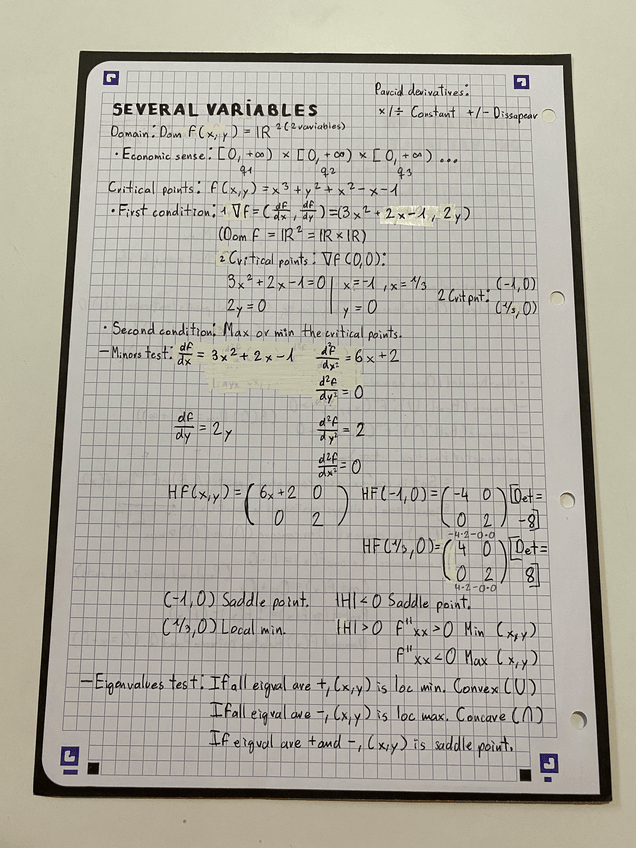 Parcid derivatives:
x/÷ Constant +/- Dissapear
SEVERAL VARIABLES
Domain: Dom f(x,y) = IR² (2 variables)
· Economic sense: [0,+∞) × [0,+∞) × [0,+∞) ...
q1 q2 q3
Critical points: f(x,y) = x³ + y² + x² - x - 1
· First condition: 1 ∇f = (df/dx, df/dy) = (3x² + 2x - 1, 2y)
(Dom f = IR² = IR x IR)
2 Critical points: ∇f(0,0):
3x² + 2x - 1 = 0 | x = -1, x = 1/3
2y = 0 | y = 0
2 Crit pnt: (-1,0)
(1/3,0)
· Second condition: Max or min the critical points.
- Minors test: df/dx = 3x² + 2x - 1 d²f/dx² = 6x + 2
d²f/dy² = 0
df/dy = 2y d²f/dy² = 2
d²f/dx² = 0
HF(x,y) = (6x+2 0 HF(-1,0) = (-4 0 ) [Det =
0 2) 0 2 -8]
-4·2-0·0
HF(1/3,0) = (4 0 ) [Det =
0 2 8]
4·2-0·0
(-1,0) Saddle point. |H| < 0 Saddle point.
(1/3,0) Local min. |H| > 0 f''xx > 0 Min (x,y)
f''xx < 0 Max (x,y)
- Eigenvalues test: If all eigval are +, (x,y) is loc min. Convex (U)
If all eigval are -, (x,y) is loc max. Concave (∩)
If eigval are + and -, (x,y) is saddle point.